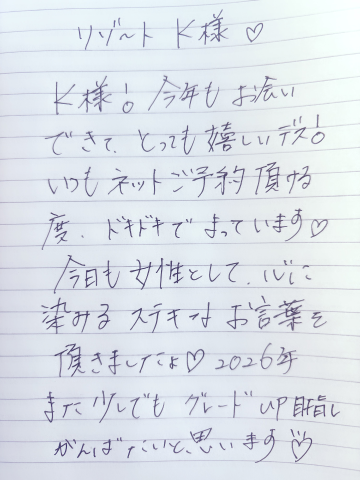 リゾート K様 ♡
K様! 今年も お会い
できて、とっても 嬉しいデス!
いつも ネットご予約 頂ける
度、ドキドキで まっています♡
今日も 女性として、心に
染みる ステキな お言葉を
頂きましたょ♡ 2026年
また 少しでも グレードUP目指し
がんばりたいと、思います♡